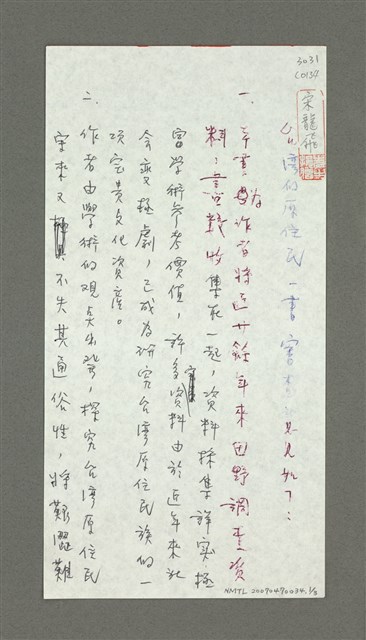 3031
C0134
宋龍飛
台灣的原住民一書審查意見如下：
一、本書為作者將近廿餘年來田野調查資
料，彙整收集在一起，資料採集詳實，極
富學術參考價值，許多資料由於近年來社
會變遷極劇，已成為研究台灣原住民族的一
項寶貴文化資產。
二、作者由學術的觀點出發，探究台灣原住民
宗來又不失其通俗性，將艱澀難
NMTL 20090490034. 1/3